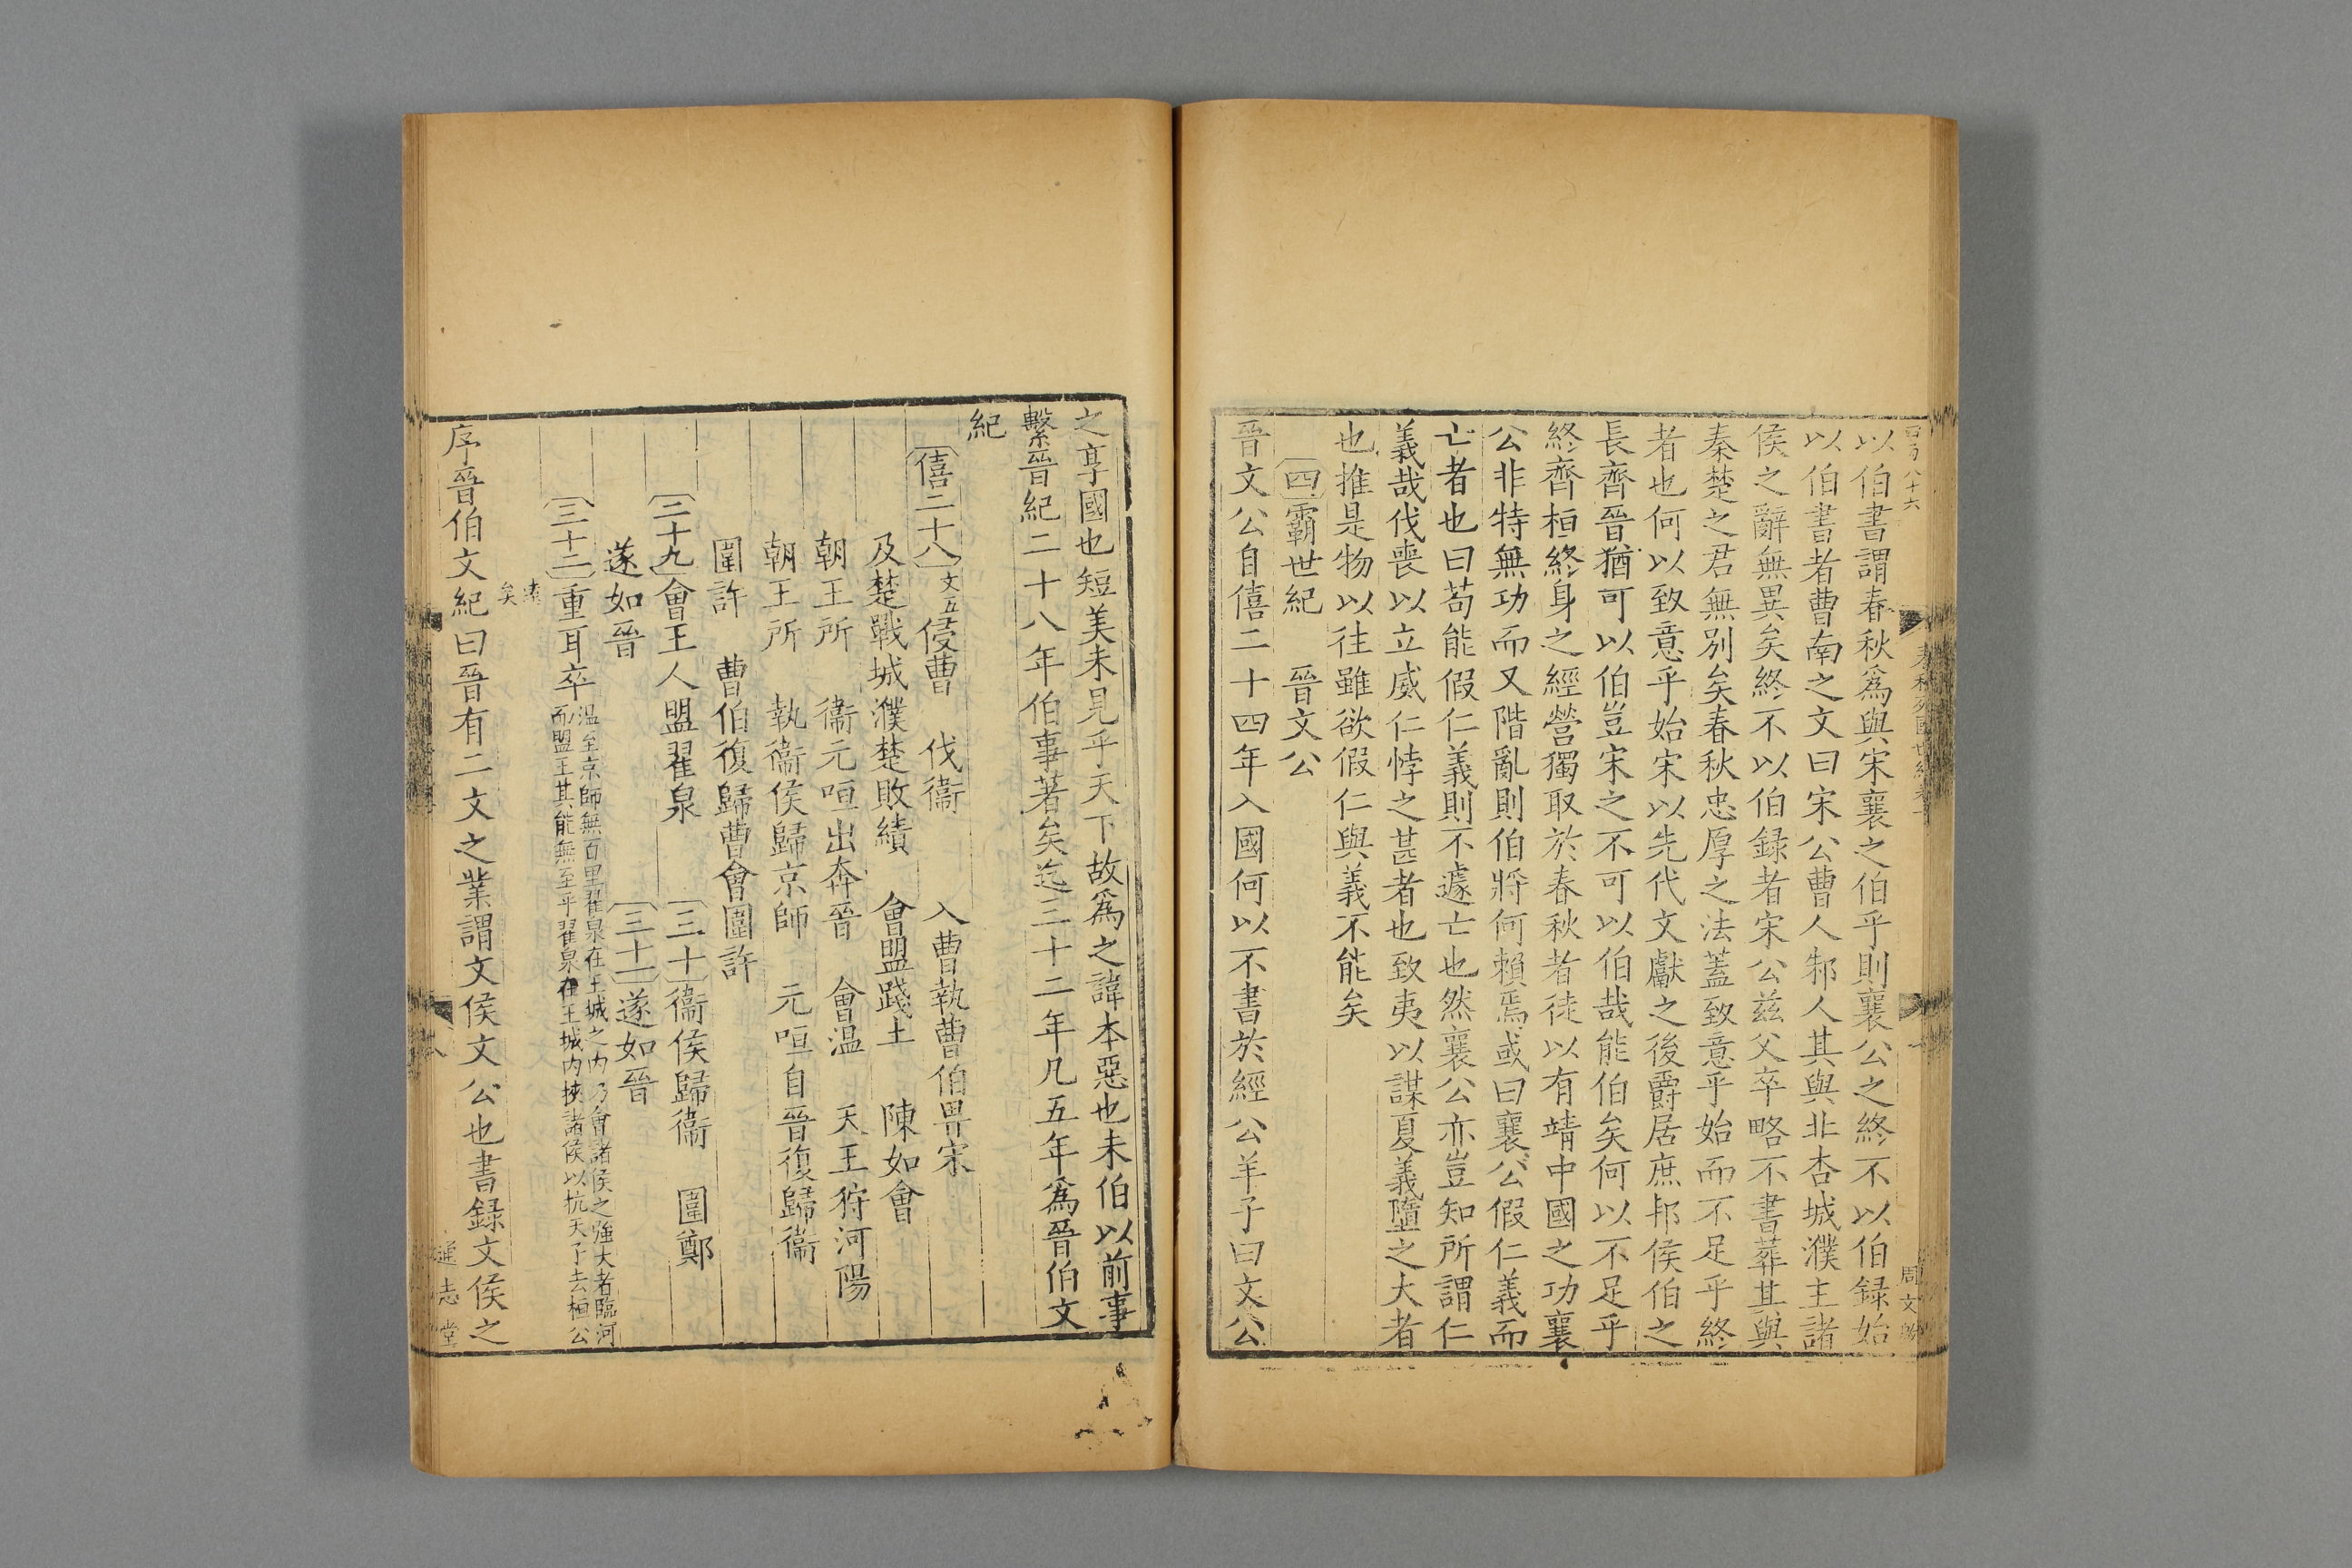 以伯書謂春秋爲與宋襄之伯乎則襄公之終不以伯録始
以伯書者曹南之文曰宋公曹人邾人其與非杏城濮主諸
侯之辭無異矣終不以伯録者宋公兹父卒略不書葬其與
秦楚之君無別矣春秋忠厚之法蓋致意乎始而不足乎終
者也何以致意乎始宋以先代文獻之後爵居庶邦侯伯之
長齊晉猶可以伯豈宋之不可以伯哉能伯矣何以不足乎
終齊桓終身之經營獨取於春秋者徒以有靖中國之功襄
公非特無功而又階亂則伯將何賴焉或曰襄公假仁義而
亡者也曰苟能假仁義則不遽亡也然襄公亦豈知所謂仁
義哉伐喪以立威仁悖之甚者也致夷以謀夏義隳之大者
也推是物以往雖欲假仁與義不能矣
四霸世紀 晉文公
晉文公自僖二十四年入國何以不書於經公羊子曰文公
周文
之享國也短美未見乎天下故爲之諱本惡也未伯以前事
繫晉紀二十八年伯事著矣迄三十二年凡五年爲晉伯文
紀
僖二十八 文五 侵曹 伐衞 入曹執曹伯畀宋
及楚戰城濮楚敗績 會盟踐土 陳如會
朝王所 衞元咺出奔晉 會温 天王狩河陽
朝王所 執衞侯歸京師 元咺自晉復歸衞
圍許 曹伯復歸曹會圍許
二十九 會王人盟翟泉 三十 衞侯歸衞 圍鄭
遂如晉 三十一 遂如晉
三十二 重耳卒 温至京師無百里翟泉在王城之内乃會諸侯之強大者臨河
而盟王其能無至乎翟泉在王城内挾諸侯以抗天子去桓公
遠矣
序晉伯文紀曰晉有二文之業謂文侯文公也書録文侯之
八
通志堂